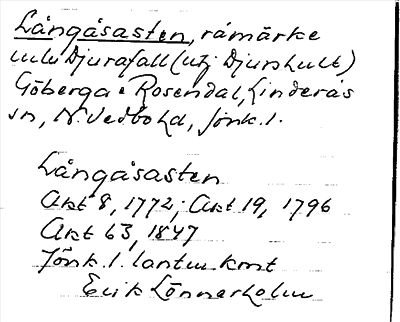 Långåsasten, råmärke
Djurafall (utj Djurhult)
Göberga o Rosendal, Linderås
sn, N. Vedbohd, Jönk. l.
Långåsasten
Akt 8, 1772; Akt 19, 1796
Akt 63, 1847
Jönk. l. lantm. knt
Erik Lönnerholm